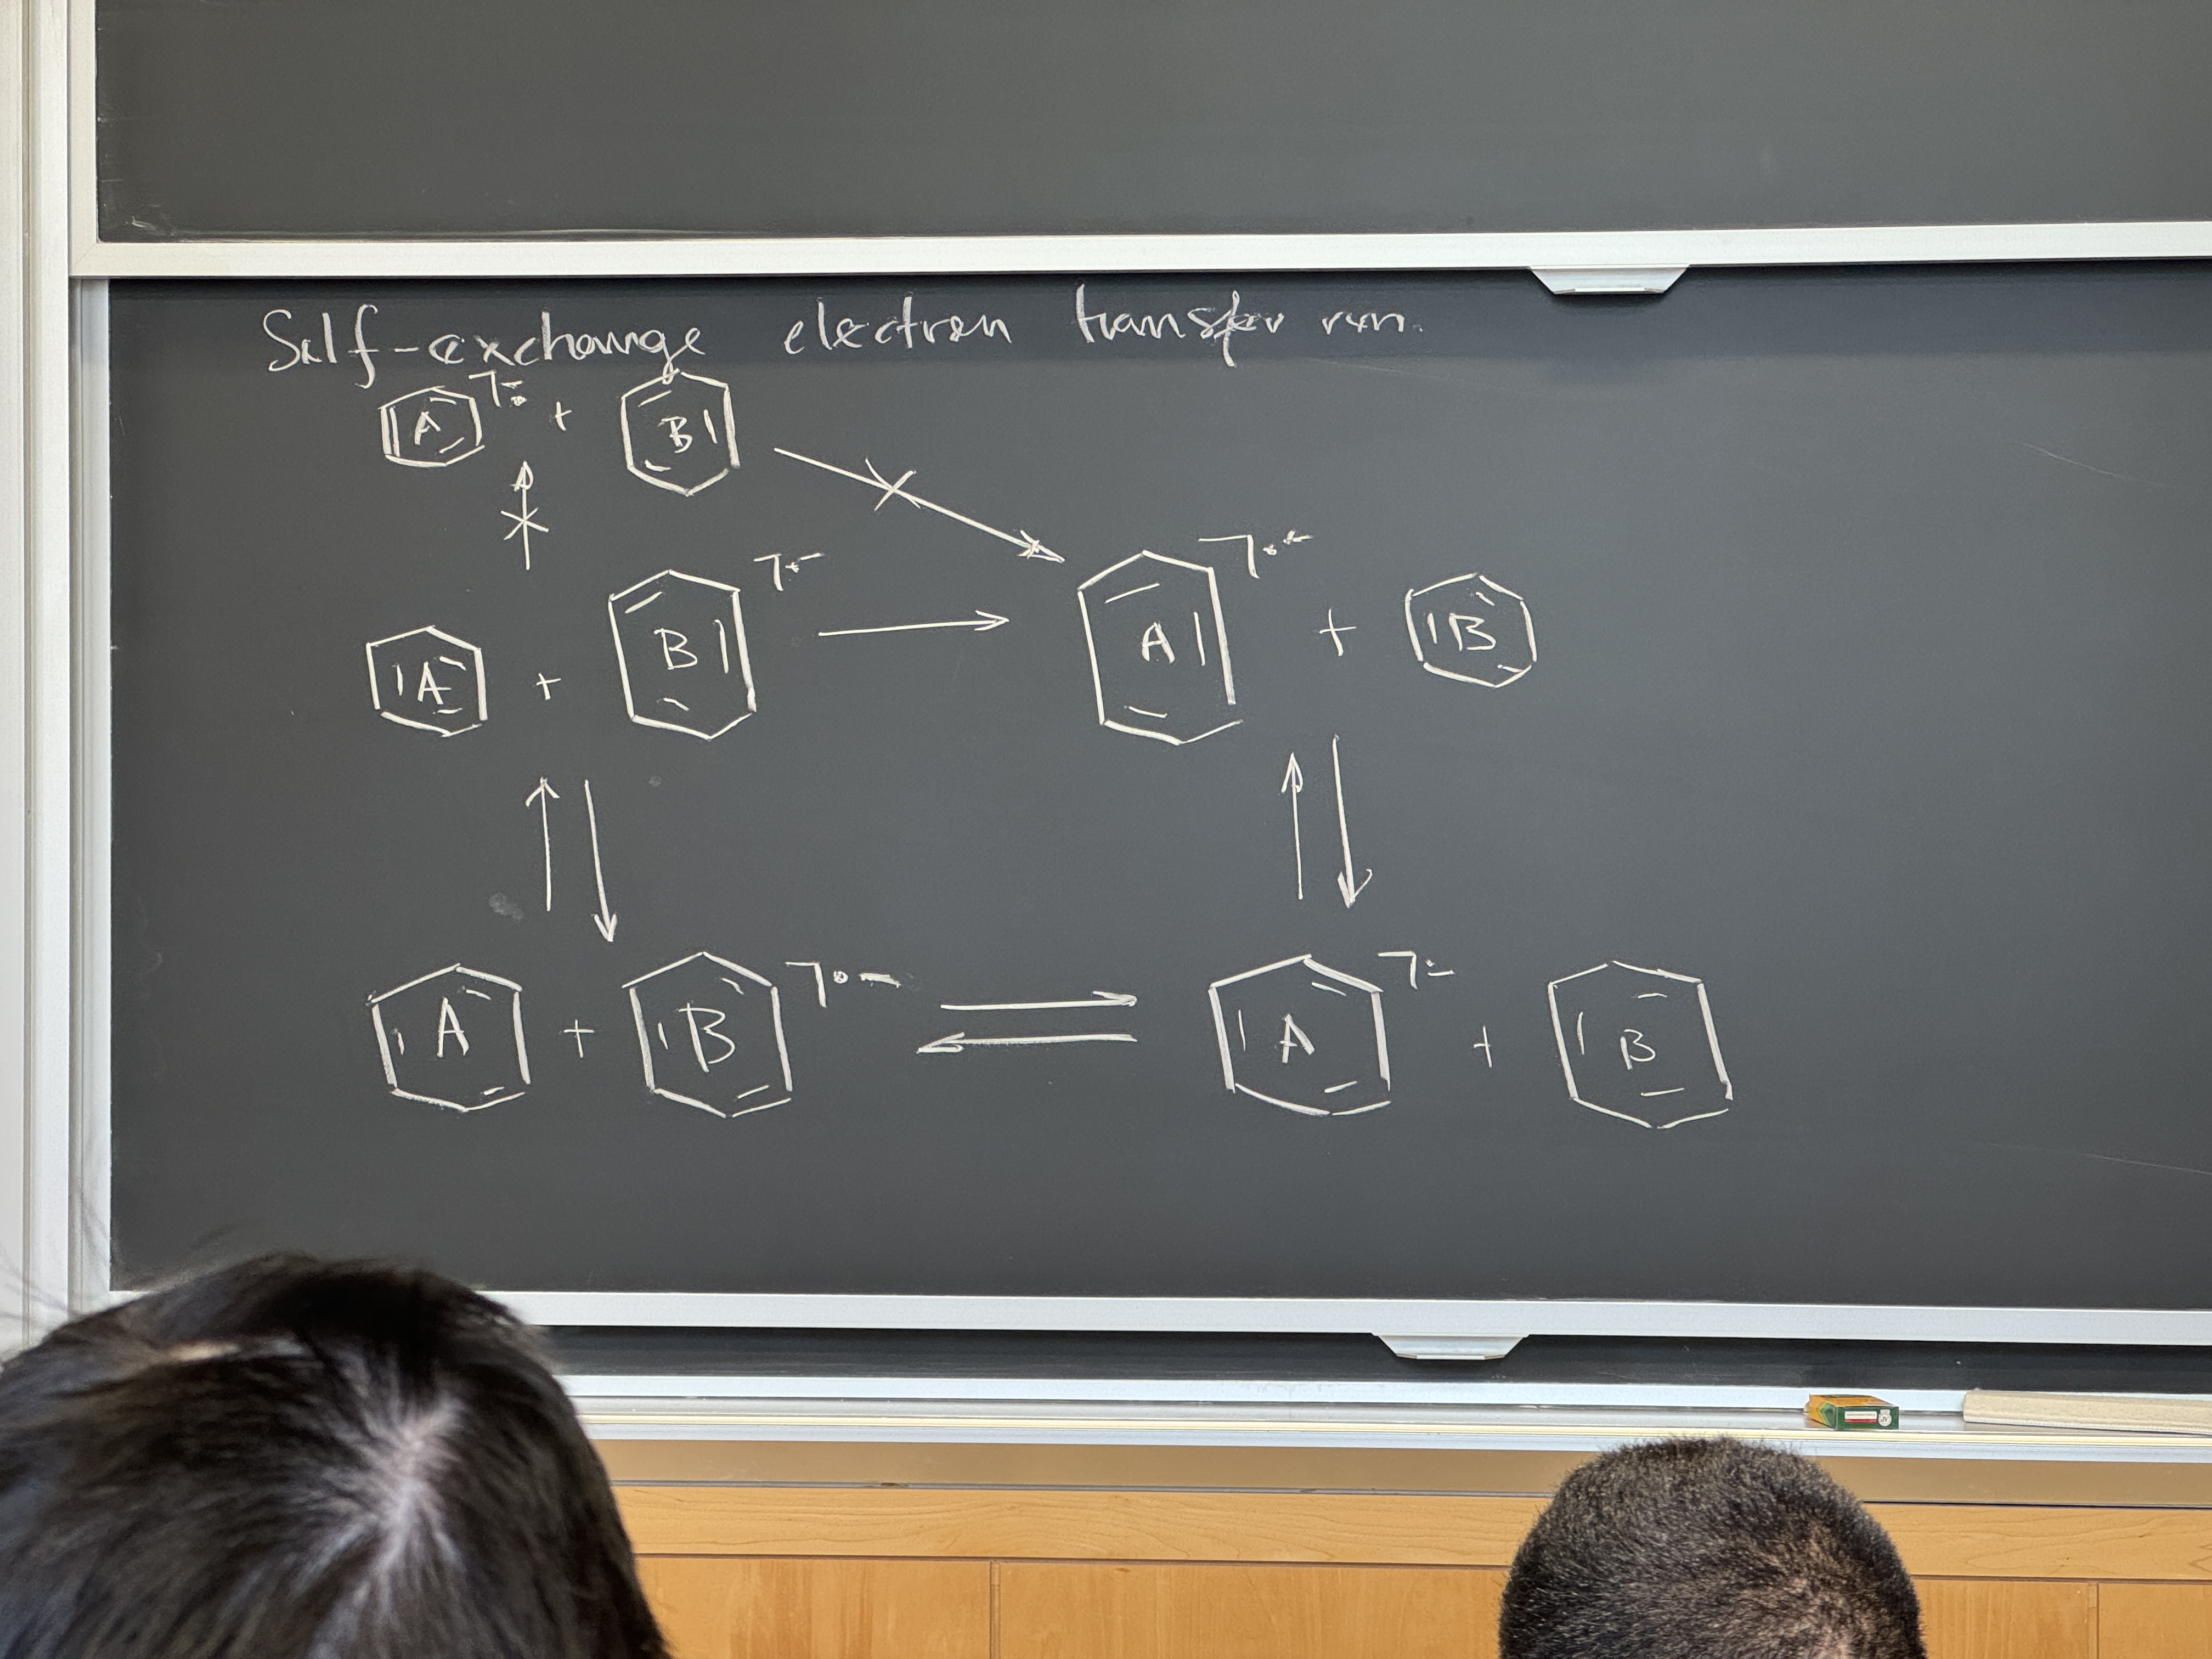 Self-exchange electron transfer rxn.
A ⁷•⁻ + B
A + B ⁷•⁻ → A ⁷•⁻ + B
A + B ⁷•⁻ ⇌ A ⁷•⁻ + B